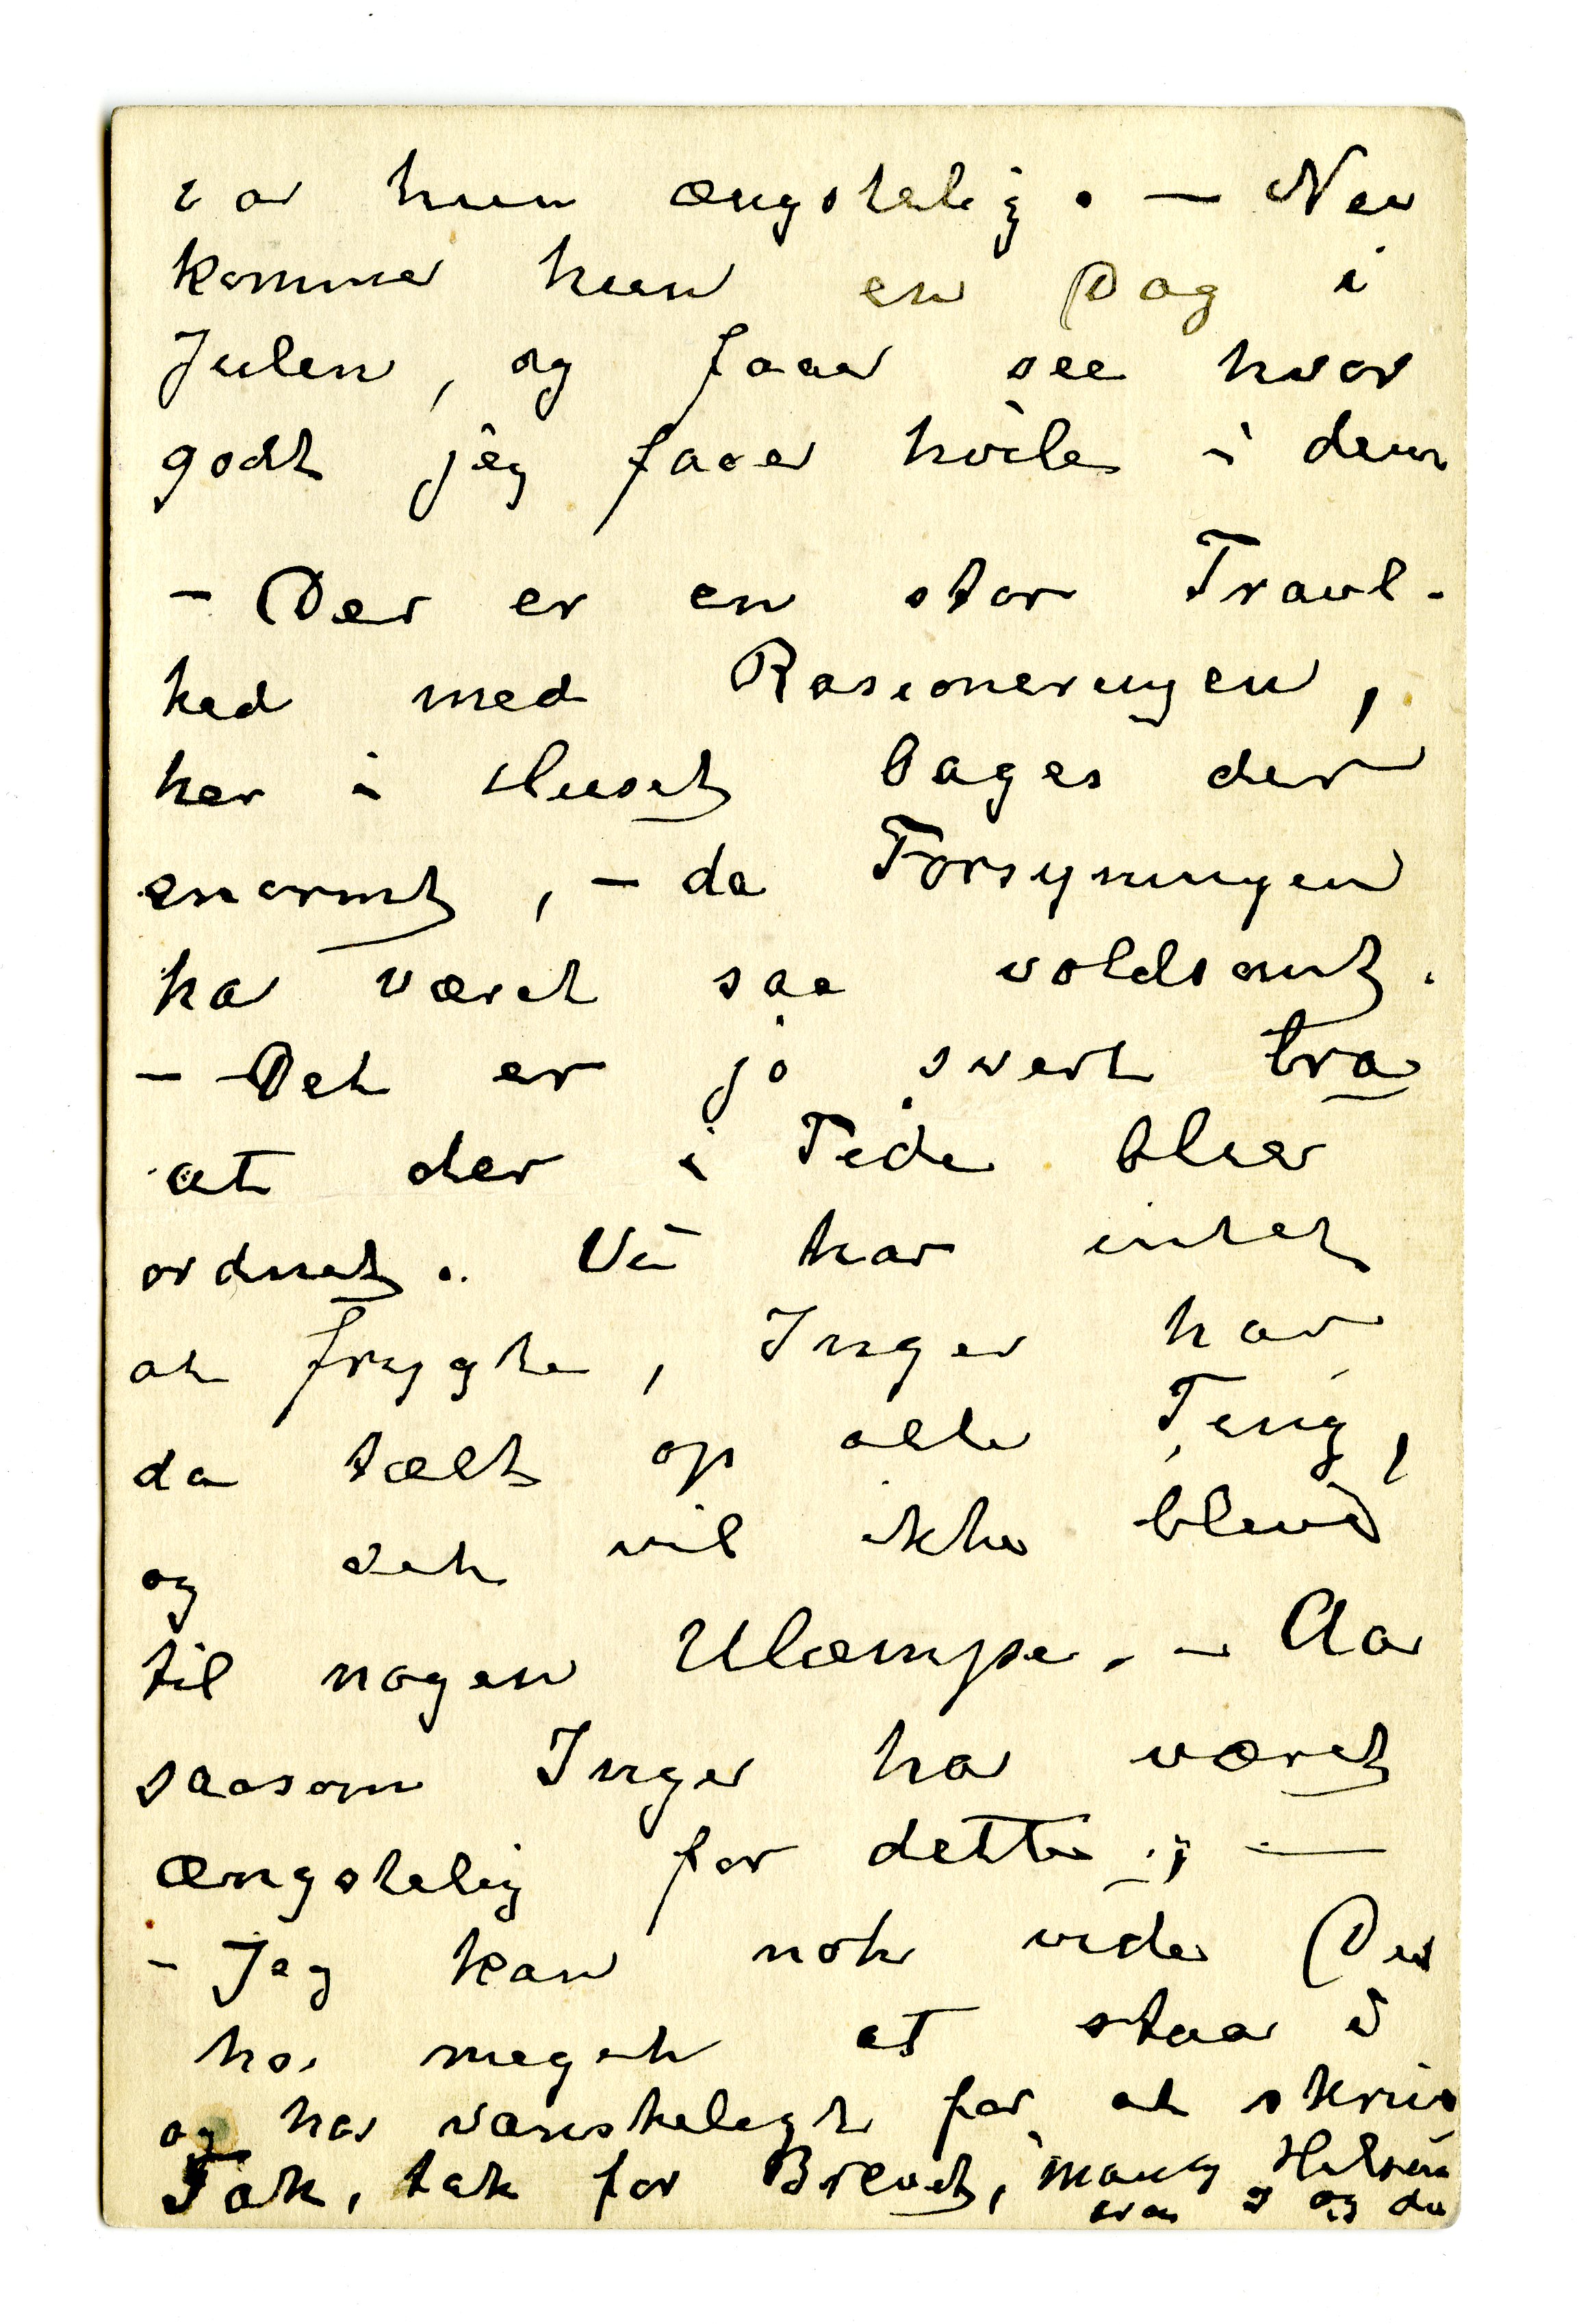 var hun ængstelig. — Nu
kommer hun en Dag i
Julen, og faar see hvor
godt jeg faaer hvile i dem
- Der er en stor Travl-
hed med Rasioneringen,
her i Huset bages der
enormt, - da Forsyningen
har været saa voldsomt.
- Det er jo svert bra
at der i Tide blier
ordnet. Vi har intet
at frygte, Inger har
da tælt op alle Ting,
og det vil ikke blive
til nogen Ulæmpe. - Aa
saasom Inger har været
ængstelig for dette; —
- Jeg kan nok vide Du
har meget at staa i
og har vanskeligt for at skrive
Tak, tak for Brevet, mange Hilsen
og du